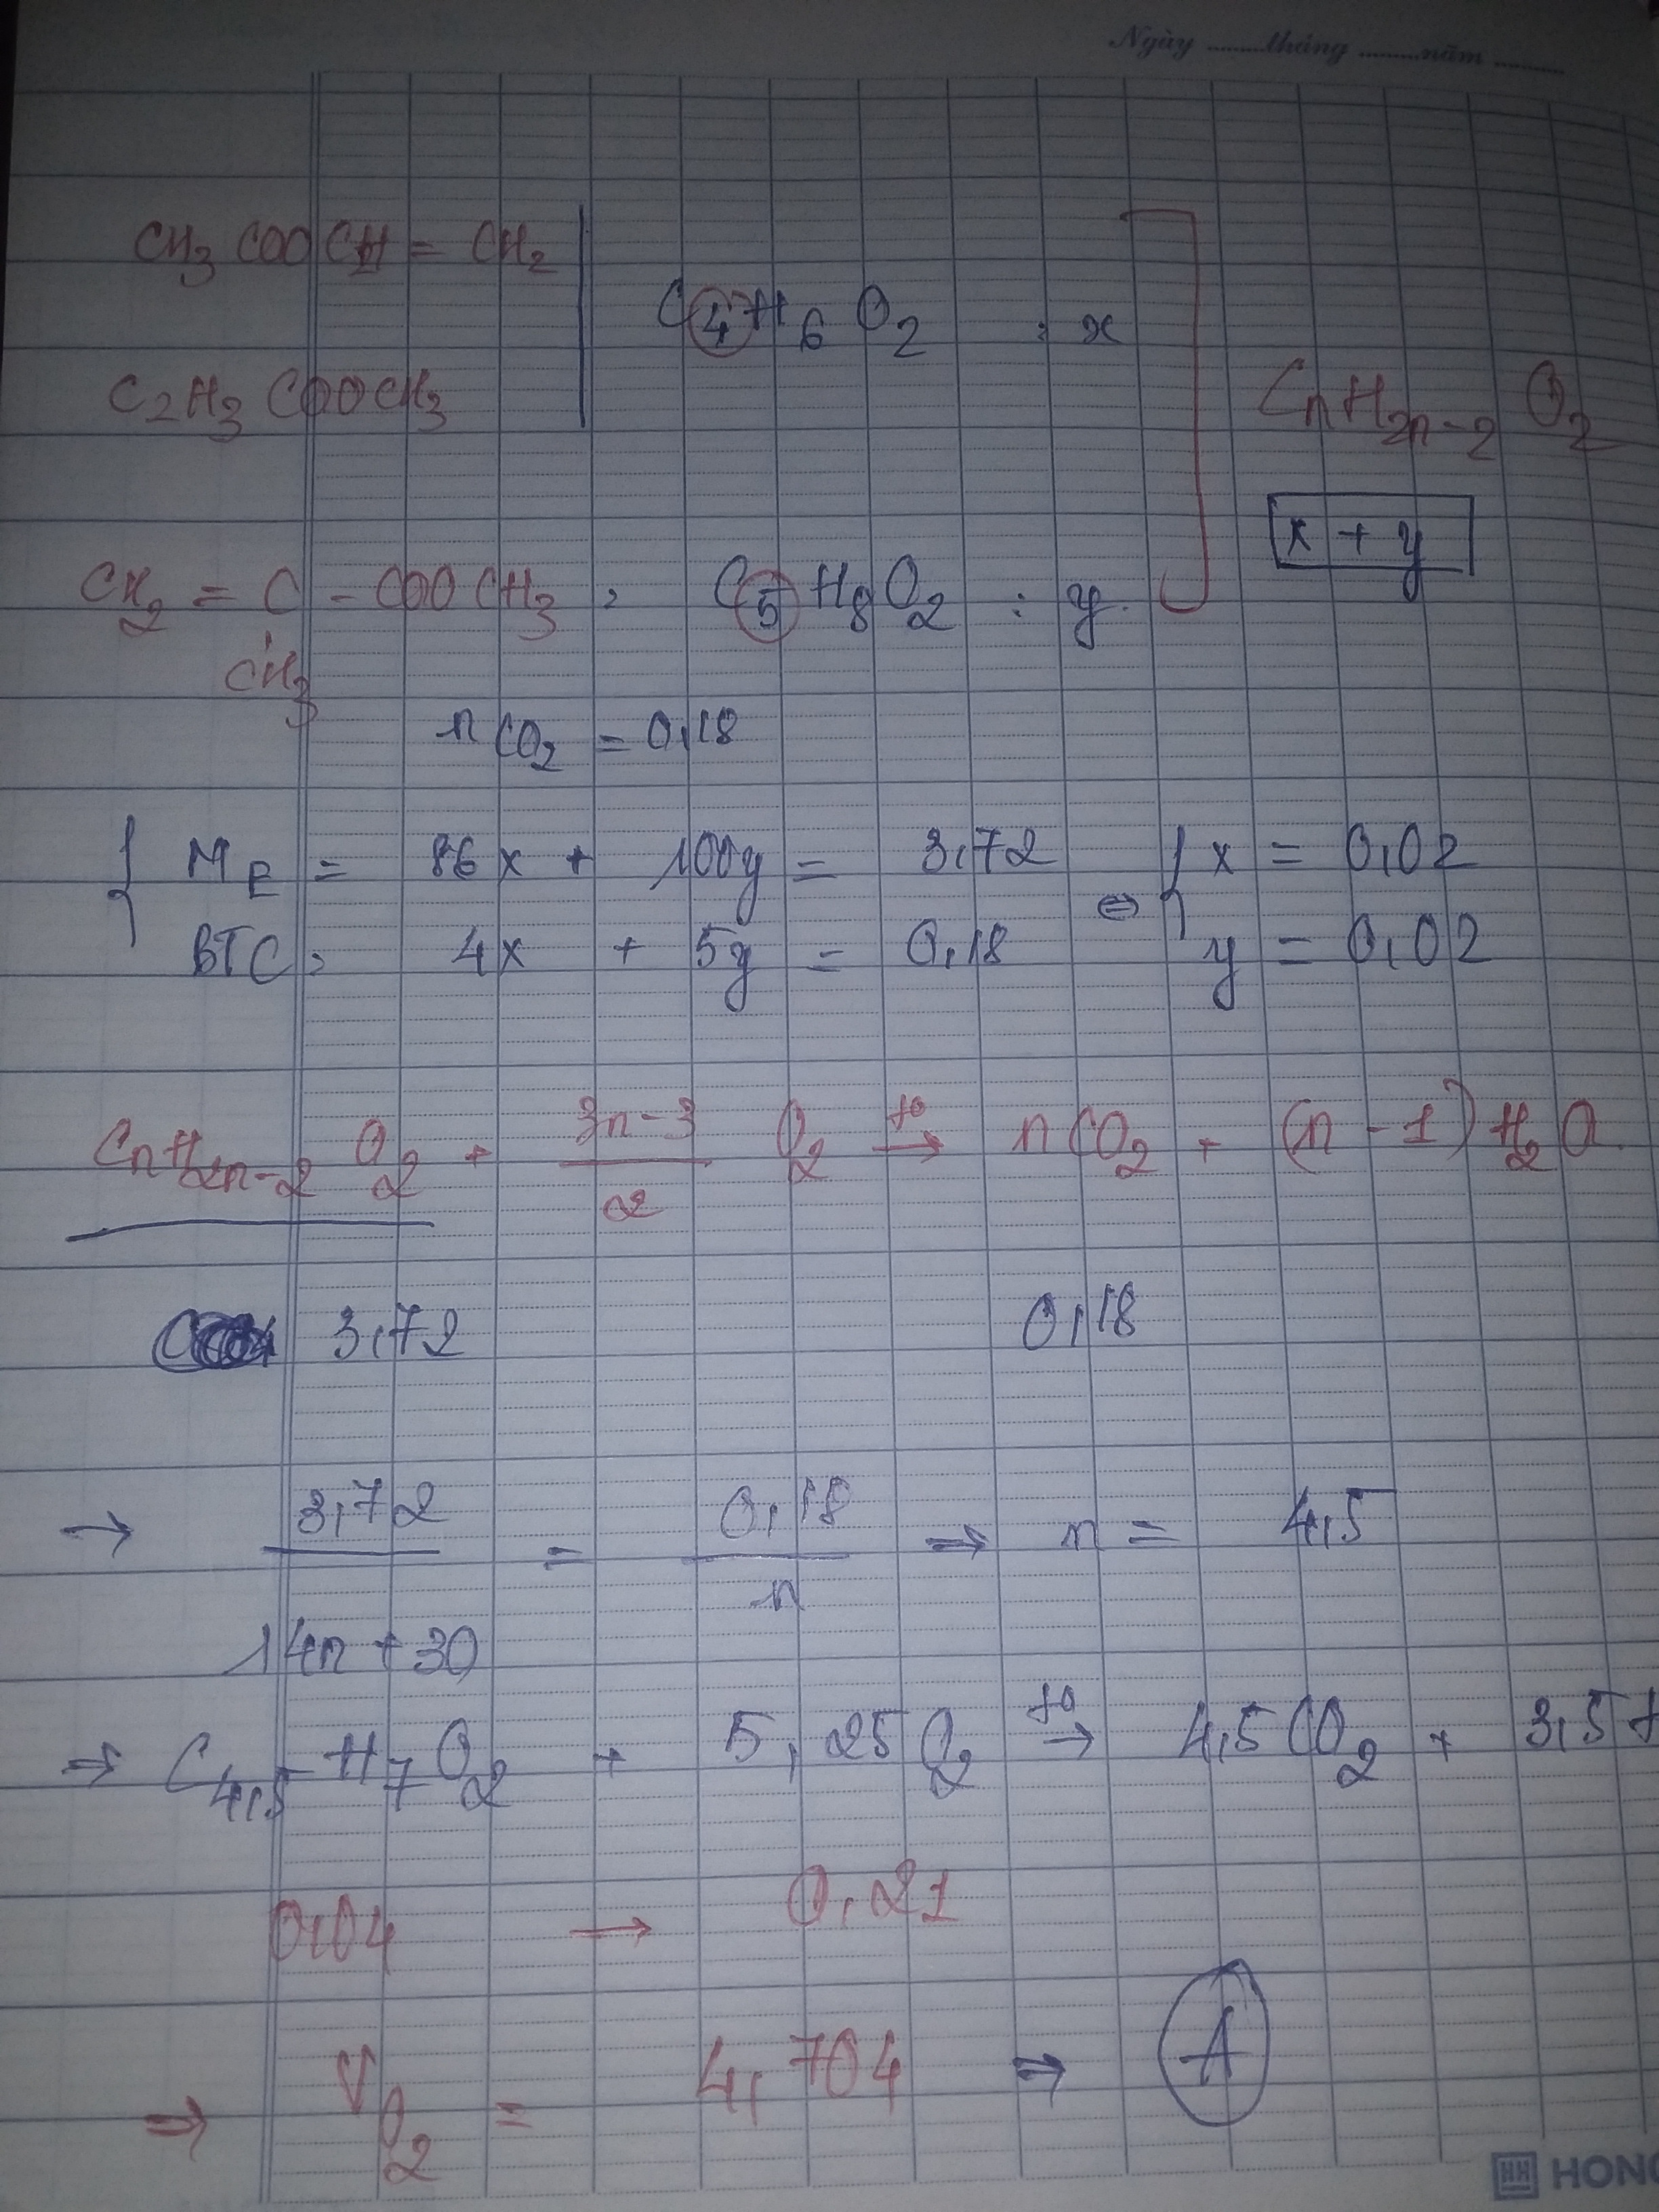 Ngày ........ tháng ........ năm ........
CH3 COO CH = CH2
C4H6O2 : x
C2H3 COOCH3
CnH2n-2 O2
x + y
CH2 = C - COO CH3 , C5H8O2 : y
CH3
nCO2 = 0,18
{ ME = 86x + 100y = 3,72 ⇔ { x = 0,02
BTC : 4x + 5y = 0,18 y = 0,02
CnH2n-2 O2 + 3n-3/2 O2 t° → nCO2 + (n-1) H2O
3,72 0,18
→ 3,72/14n+30 = 0,18/n ⇒ n = 4,5
⇒ C4,5 H7 O2 + 5,25 O2 t° → 4,5 CO2 + 3,5
0,04 → 0,21
⇒ VO2 = 4,704 ⇒ A
HH HONG